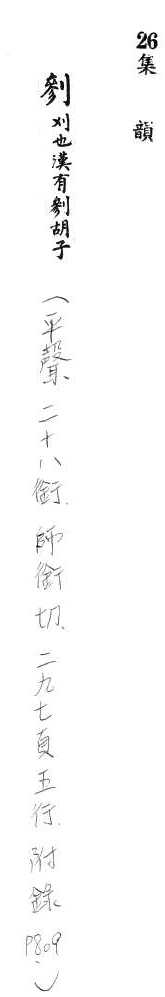 26集韻
剼 刈也漢有剼胡子(平聲、二十八銜、師銜切、二九七頁五行、附錄P809)